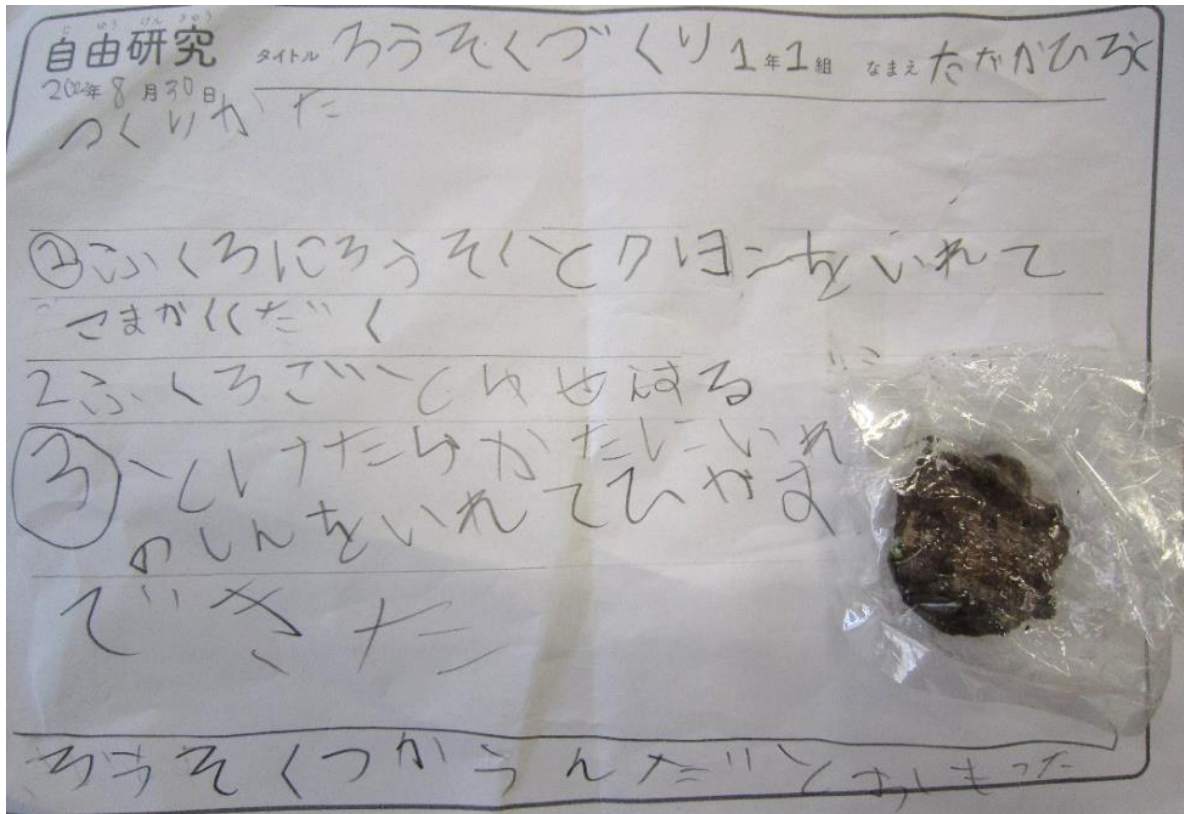 じゆうけんきゅう
自由研究 タイトル ろうそくづくり 1年1組 なまえ
8月30日
つくりかた
①ふくろにろうそくとクヨンをいれて
こまかくくだく
2ふくろごとゆせんする
③とけたらかたにいれ
のしんをいれてひやす
できた
ろうそくつかうんだとおもった